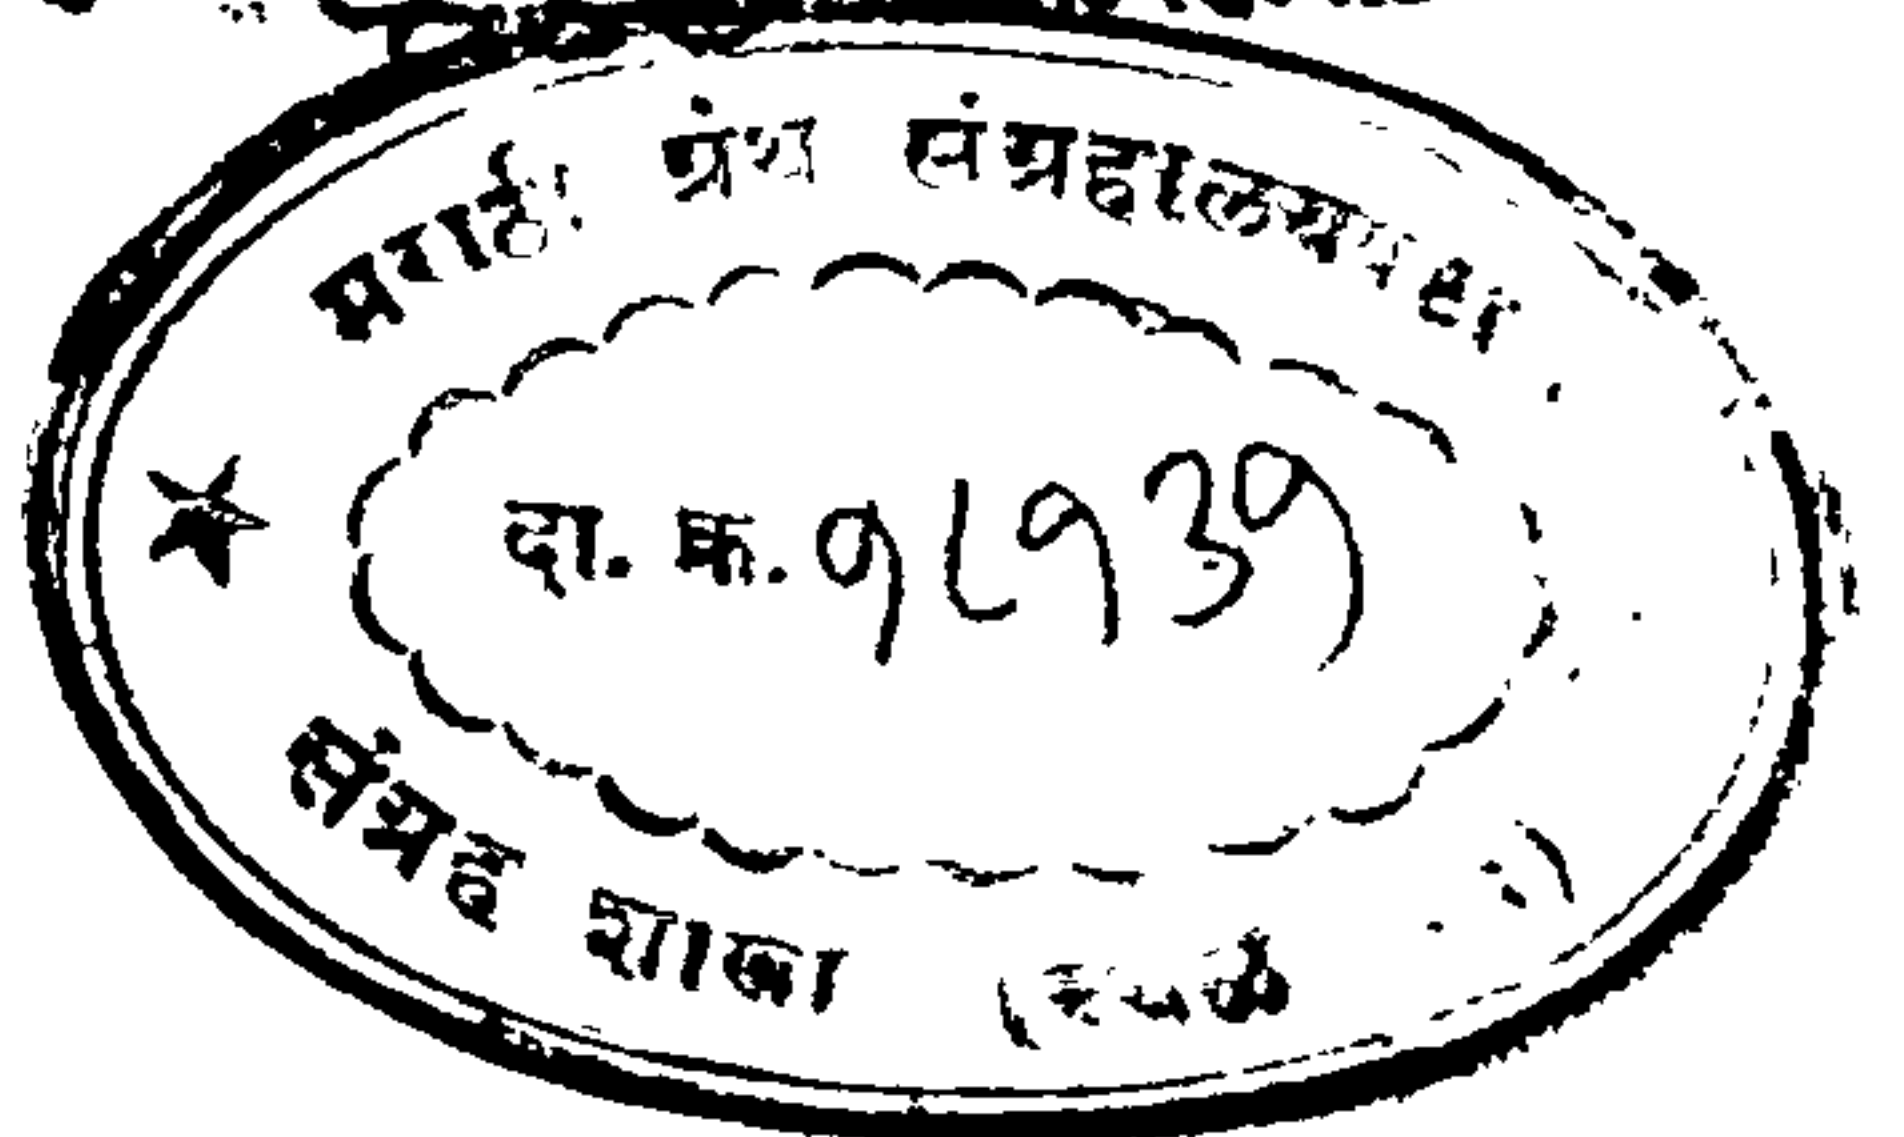 मराठी ग्रंथ संग्रहालय
दा. क्र. १८१३१
संग्रह शाखा (स्थळ